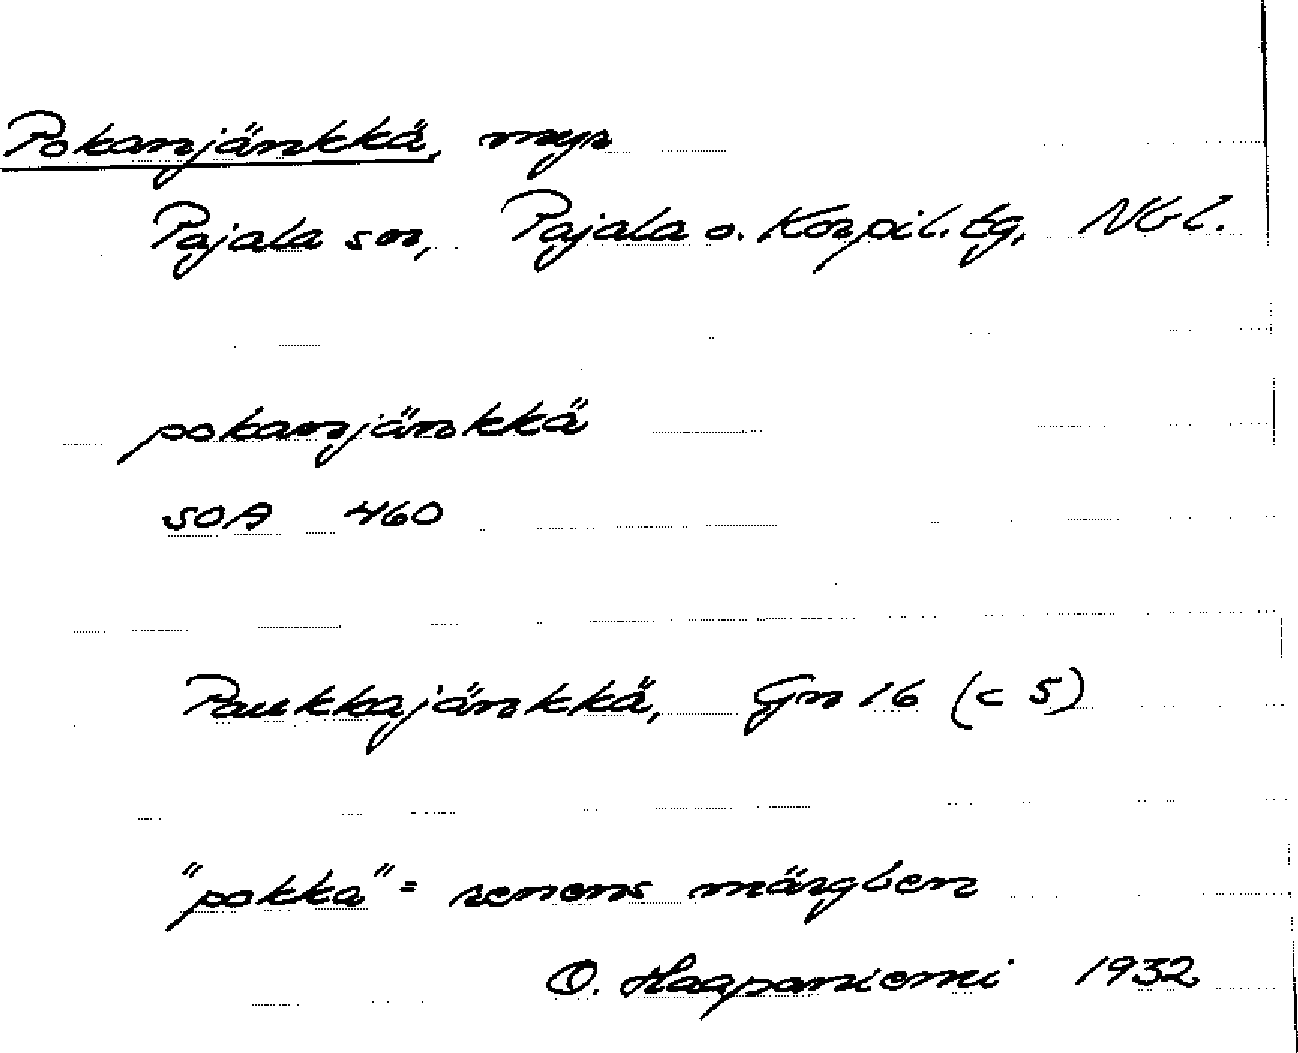 Pokanjänkkä, myr
Pajala sn, Pajala o. Korpil. tg, Nbl.
pokanjänkkä
SOA 460
Paukkajänkkä, Gn 16 (c 5)
"pokka" = renens märgben
O. Haapaniemi 1932